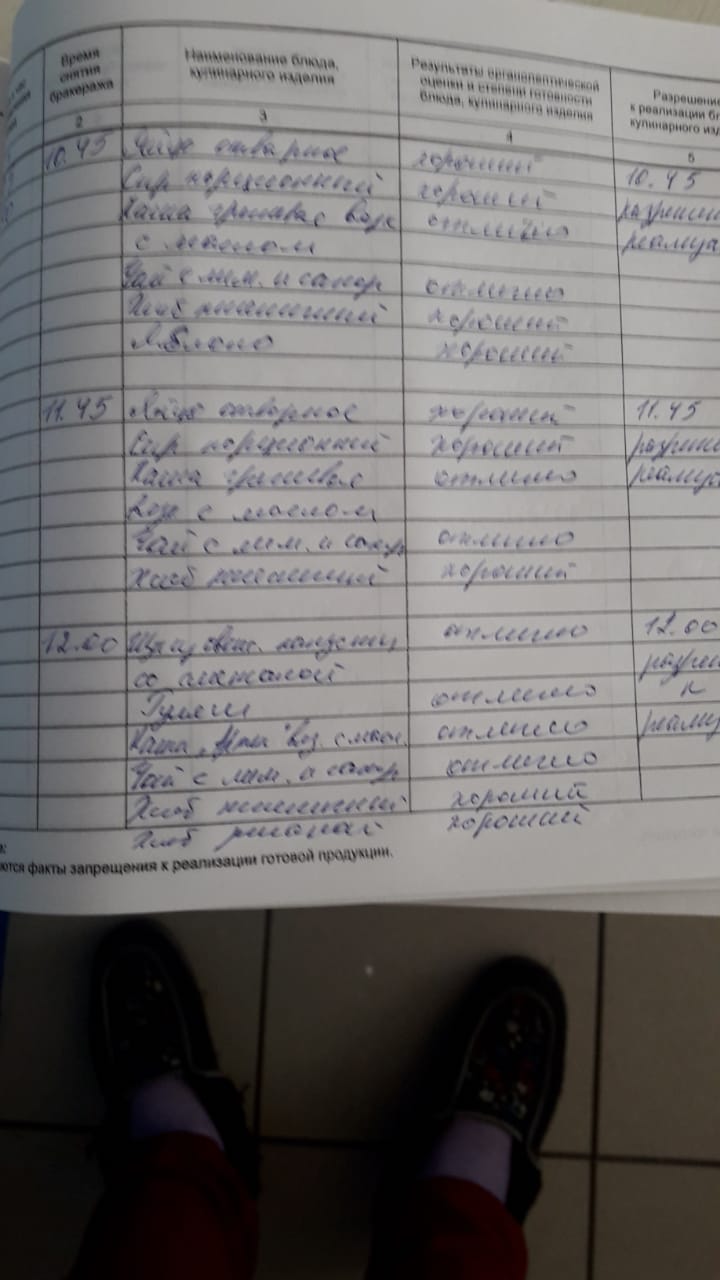 Время снятия бракеража
Наименование блюда, кулинарного изделия
Результаты органолептической оценки и степени готовности блюда, кулинарного изделия
Разрешени
к реализации бл
кулинарного изд
2 3 4 5
10.45 Яйцо отварное хороший 10.45
Сыр порционный хороший
Каша гречневая вязк отлично
с маслом
Чай с лим. и сахар отлично
Хлеб пшеничный хороший
Яблоко хороший
11.45 Яйцо отварное хороший 11.45
Сыр порционный хороший
Каша гречневая отлично
вязк с маслом
Чай с лим. и сахар отлично
Хлеб пшеничный хороший
12.00 Щи из свеж. капусты отлично 12.00
со сметаной
Гуляш отлично к
Каша с масл. отлично
Чай с лим. и сахар отлично
Хлеб пшеничный хороший
Хлеб ржаной хороший
ются факты запрещения к реализации готовой продукции.